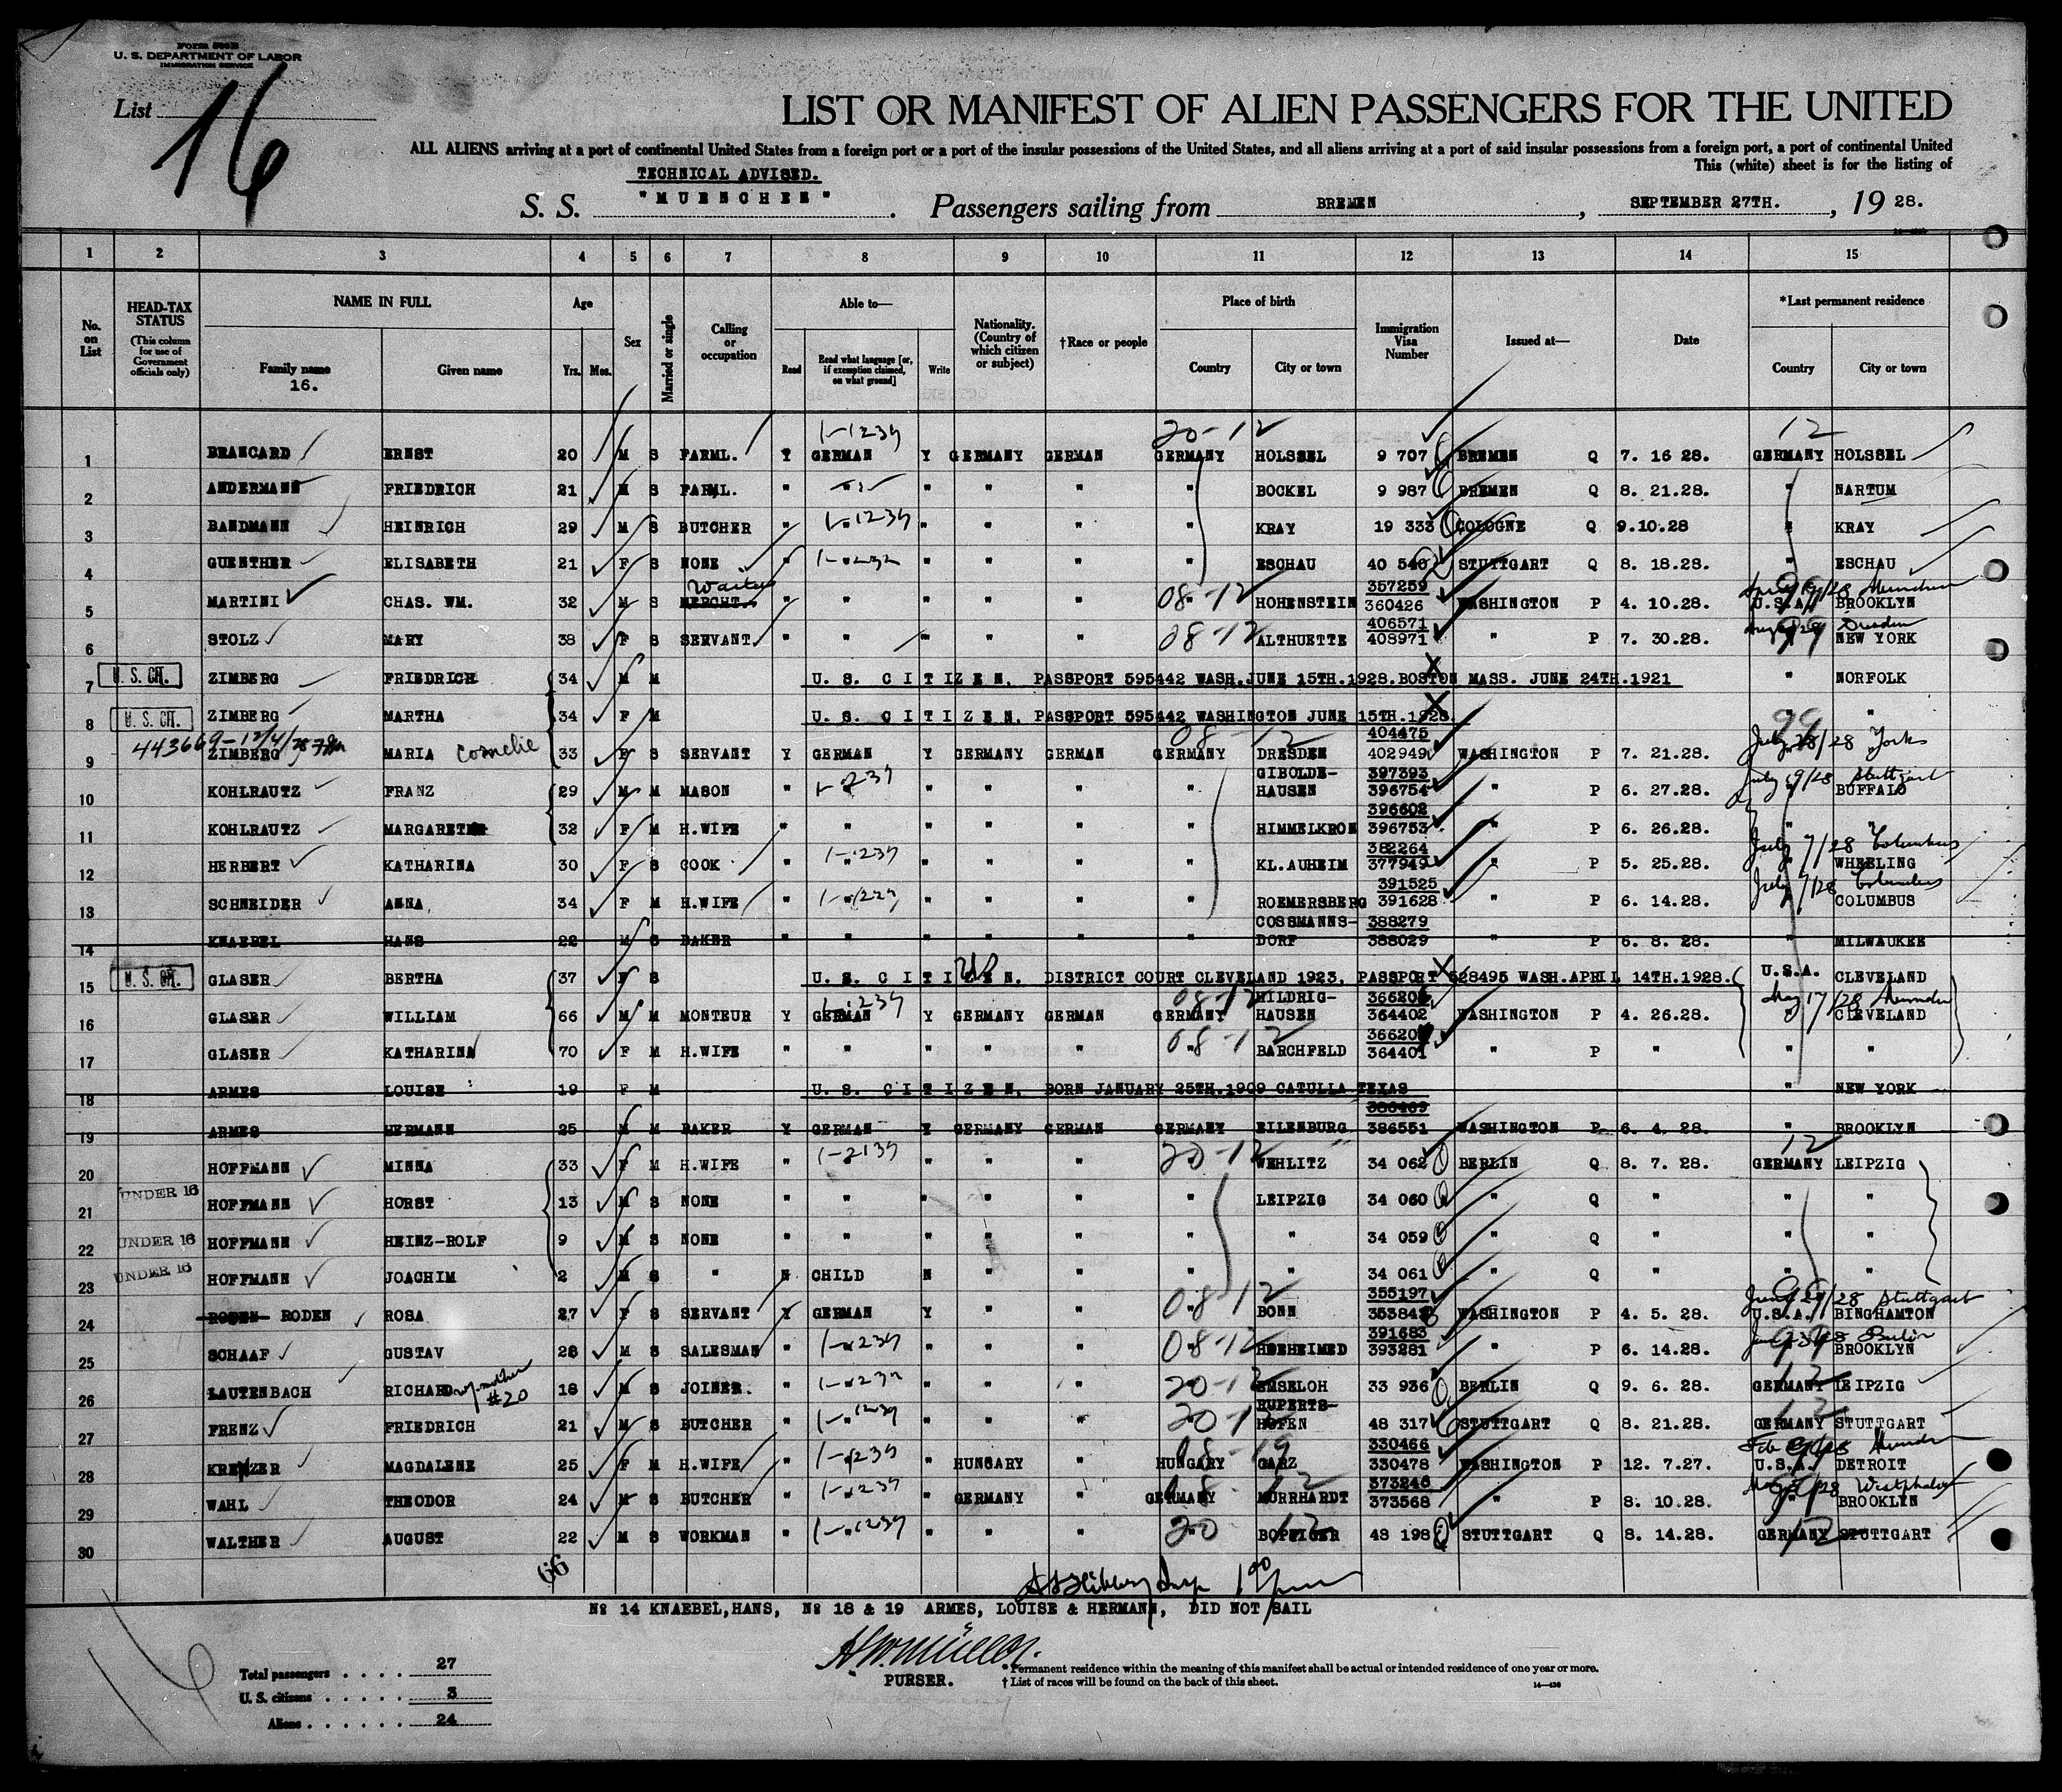 Form 500B
U. S. DEPARTMENT OF LABOR
IMMIGRATION SERVICE
List 16
LIST OR MANIFEST OF ALIEN PASSENGERS FOR THE UNITED
ALL ALIENS arriving at a port of continental United States from a foreign port or a port of the insular possessions of the United States, and all aliens arriving at a port of said insular possessions from a foreign port, a port of continental United
This (white) sheet is for the listing of
TECHNICAL ADVISED.
S. S. "MUENCHEN". Passengers sailing from BREMEN, SEPTEMBER 27TH., 19 28.
1 2 3 4 5 6 7 8 9 10 11 12 13 14 15
No. on List
HEAD-TAX STATUS (This column for use of Government officials only)
NAME IN FULL Family name 16. Given name
Age Yrs. Mos.
Sex
Married or single
Calling or occupation
Able to— Read Read what language [or, if exemption claimed, on what ground] Write
Nationality. (Country of which citizen or subject)
†Race or people
Place of birth Country City or town
Immigration Visa Number
Issued at—
Date
*Last permanent residence Country City or town
1-1239 20-12 12
1 BRANCARD ERNST 20 M S FARML. Y GERMAN Y GERMANY GERMAN GERMANY HOLSSEL 9 707 BREMEN Q 7. 16 28. GERMANY HOLSSEL
2 ANDERMANN FRIEDRICH 21 M S FARML. " " " " " " BOCKEL 9 987 BREMEN Q 8. 21.28. " NARTUM
3 BANDMANN HEINRICH 29 M S BUTCHER " " 1-1239 " " " " KRAY 19 333 COLOGNE Q 9.10.28 " KRAY
4 GUENTHER ELISABETH 21 F S NONE " " " " " " ESCHAU 40 546 STUTTGART Q 8. 18.28. " ESCHAU
Waiter 357259
5 MARTINI CHAS. WM. 32 M S MERCHT. " " " " " 08-12 HOHENSTEIN 360426 WASHINGTON P 4. 10.28. U.S.A. BROOKLYN
406571 Dresden
6 STOLZ MARY 38 F S SERVANT " " " " 08-12 ALTHUETTE 408971 " P 7. 30.28. NEW YORK
7 U. S. CIT. ZIMBERG FRIEDRICH 34 M M U. S. CITIZEN. PASSPORT 595442 WASH.JUNE 15TH.1928.BOSTON MASS. JUNE 24TH.1921 " NORFOLK
8 U. S. CIT. ZIMBERG MARTHA 34 F M U. S. CITIZEN. PASSPORT 595442 WASHINGTON JUNE 15TH.1928. " "
08-12 404475 99
9 ZIMBERG MARIA Cornelie 33 F S SERVANT Y GERMAN Y GERMANY GERMAN GERMANY DRESDEN 402949 WASHINGTON P 7. 21.28. July 28/28 York
GIBOLDE- 397393 July 9/28 Stuttgart
10 KOHLRAUTZ FRANZ 29 M M MASON " " " " " " HAUSEN 396754 " P 6. 27.28. " BUFFALO
396602
11 KOHLRAUTZ MARGARETE 32 F M H.WIFE " " " " " " HIMMELKRON 396753 " P 6. 26.28. " "
1-1239 382264 July 7/28 Columbus
12 HERBERT KATHARINA 30 F S COOK " " " " " " KL.AUHEIM 377949 " P 5. 25.28. " WHEELING
391525 July 7/28 Columbus
13 SCHNEIDER ANNA 34 F M H.WIFE " " " " " " ROEMERSBERG 391628 " P 6. 14.28. " COLUMBUS
COSSMANNS- 388279
14 KNAEBEL HANS 22 M S BAKER " " " " " " DORF 388029 " P 6. 8. 28. " MILWAUKEE
15 U. S. CIT. GLASER BERTHA 37 F S U. S. CITIZEN. DISTRICT COURT CLEVELAND 1923. PASSPORT 528495 WASH.APRIL 14TH.1928. U.S.A. CLEVELAND
08-12 HILDRIG- May 17/28
16 GLASER WILLIAM 66 M M MONTEUR Y GERMAN Y GERMANY GERMAN GERMANY HAUSEN 364402 WASHINGTON P 4. 26.28. " CLEVELAND
08-12
17 GLASER KATHARINA 70 F M H.WIFE " " " " " " BARCHFELD 364401 " P " " "
18 ARMES LOUISE 19 F M U. S. CITIZEN. BORN JANUARY 25TH.1909 CATULLA TEXAS " NEW YORK
386469
19 ARMES HERMANN 25 M M BAKER Y GERMAN Y GERMANY GERMAN GERMANY EILENBURG 386551 WASHINGTON P 6. 4. 28. " BROOKLYN
20-12 12
20 HOFFMANN MINNA 33 F M H.WIFE " " " " " WEHLITZ 34 062 BERLIN Q 8. 7. 28. GERMANY LEIPZIG
21 UNDER 16 HOFFMANN HORST 13 M S NONE " " " " " " LEIPZIG 34 060 " Q " " "
22 UNDER 16 HOFFMANN HEINZ-ROLF 9 M S NONE " " " " " " " 34 059 " Q " " "
23 UNDER 16 HOFFMANN JOACHIM 2 M S " N CHILD N " " " " 34 061 " Q " " "
08-12 355197 June 29/28 Stuttgart
24 RODEN ROSA 27 F S SERVANT Y GERMAN Y " " " BONN WASHINGTON P 4. 5. 28. U.S.A. BINGHAMTON
1-1239 08-12 391683 Berlin
25 SCHAAF GUSTAV 28 M S SALESMAN " " " " " " 393281 " P 6. 14.28. BROOKLYN
20-12 12
26 LAUTENBACH RICHARD #20 18 M S JOINER. " " " " " EMSELOH 33 936 BERLIN Q 9. 6. 28. GERMANY LEIPZIG
1-1239 20-12 RUPERTS-
27 FRENZ FRIEDRICH 21 M S BUTCHER " " " " " HOFEN 48 317 STUTTGART Q 8. 21.28. GERMANY STUTTGART
08-19 330466
28 KREUZER MAGDALENE 25 F M H.WIFE " " " HUNGARY " HUNGARY GARZ 330478 WASHINGTON P 12. 7.27. U.S.A. DETROIT
373246 Westphalen
29 WAHL THEODOR 24 M S BUTCHER " " " GERMANY " GERMANY MURRHARDT 373568 " P 8. 10.28. " BROOKLYN
30 WALTHER AUGUST 22 M S WORKMAN " " 1-1239 " " " 20 12 BOPFIGER 48 198 STUTTGART Q 8. 14.28. GERMANY STUTTGART
66
No 14 KNAEBEL,HANS, No 18 & 19 ARMES, LOUISE & HERMANN, DID NOT SAIL
PURSER.
Total passengers . . . . 27
U. S. citizens . . . . . 3
Aliens . . . . . . 24
* Permanent residence within the meaning of this manifest shall be actual or intended residence of one year or more.
† List of races will be found on the back of this sheet.
14—426